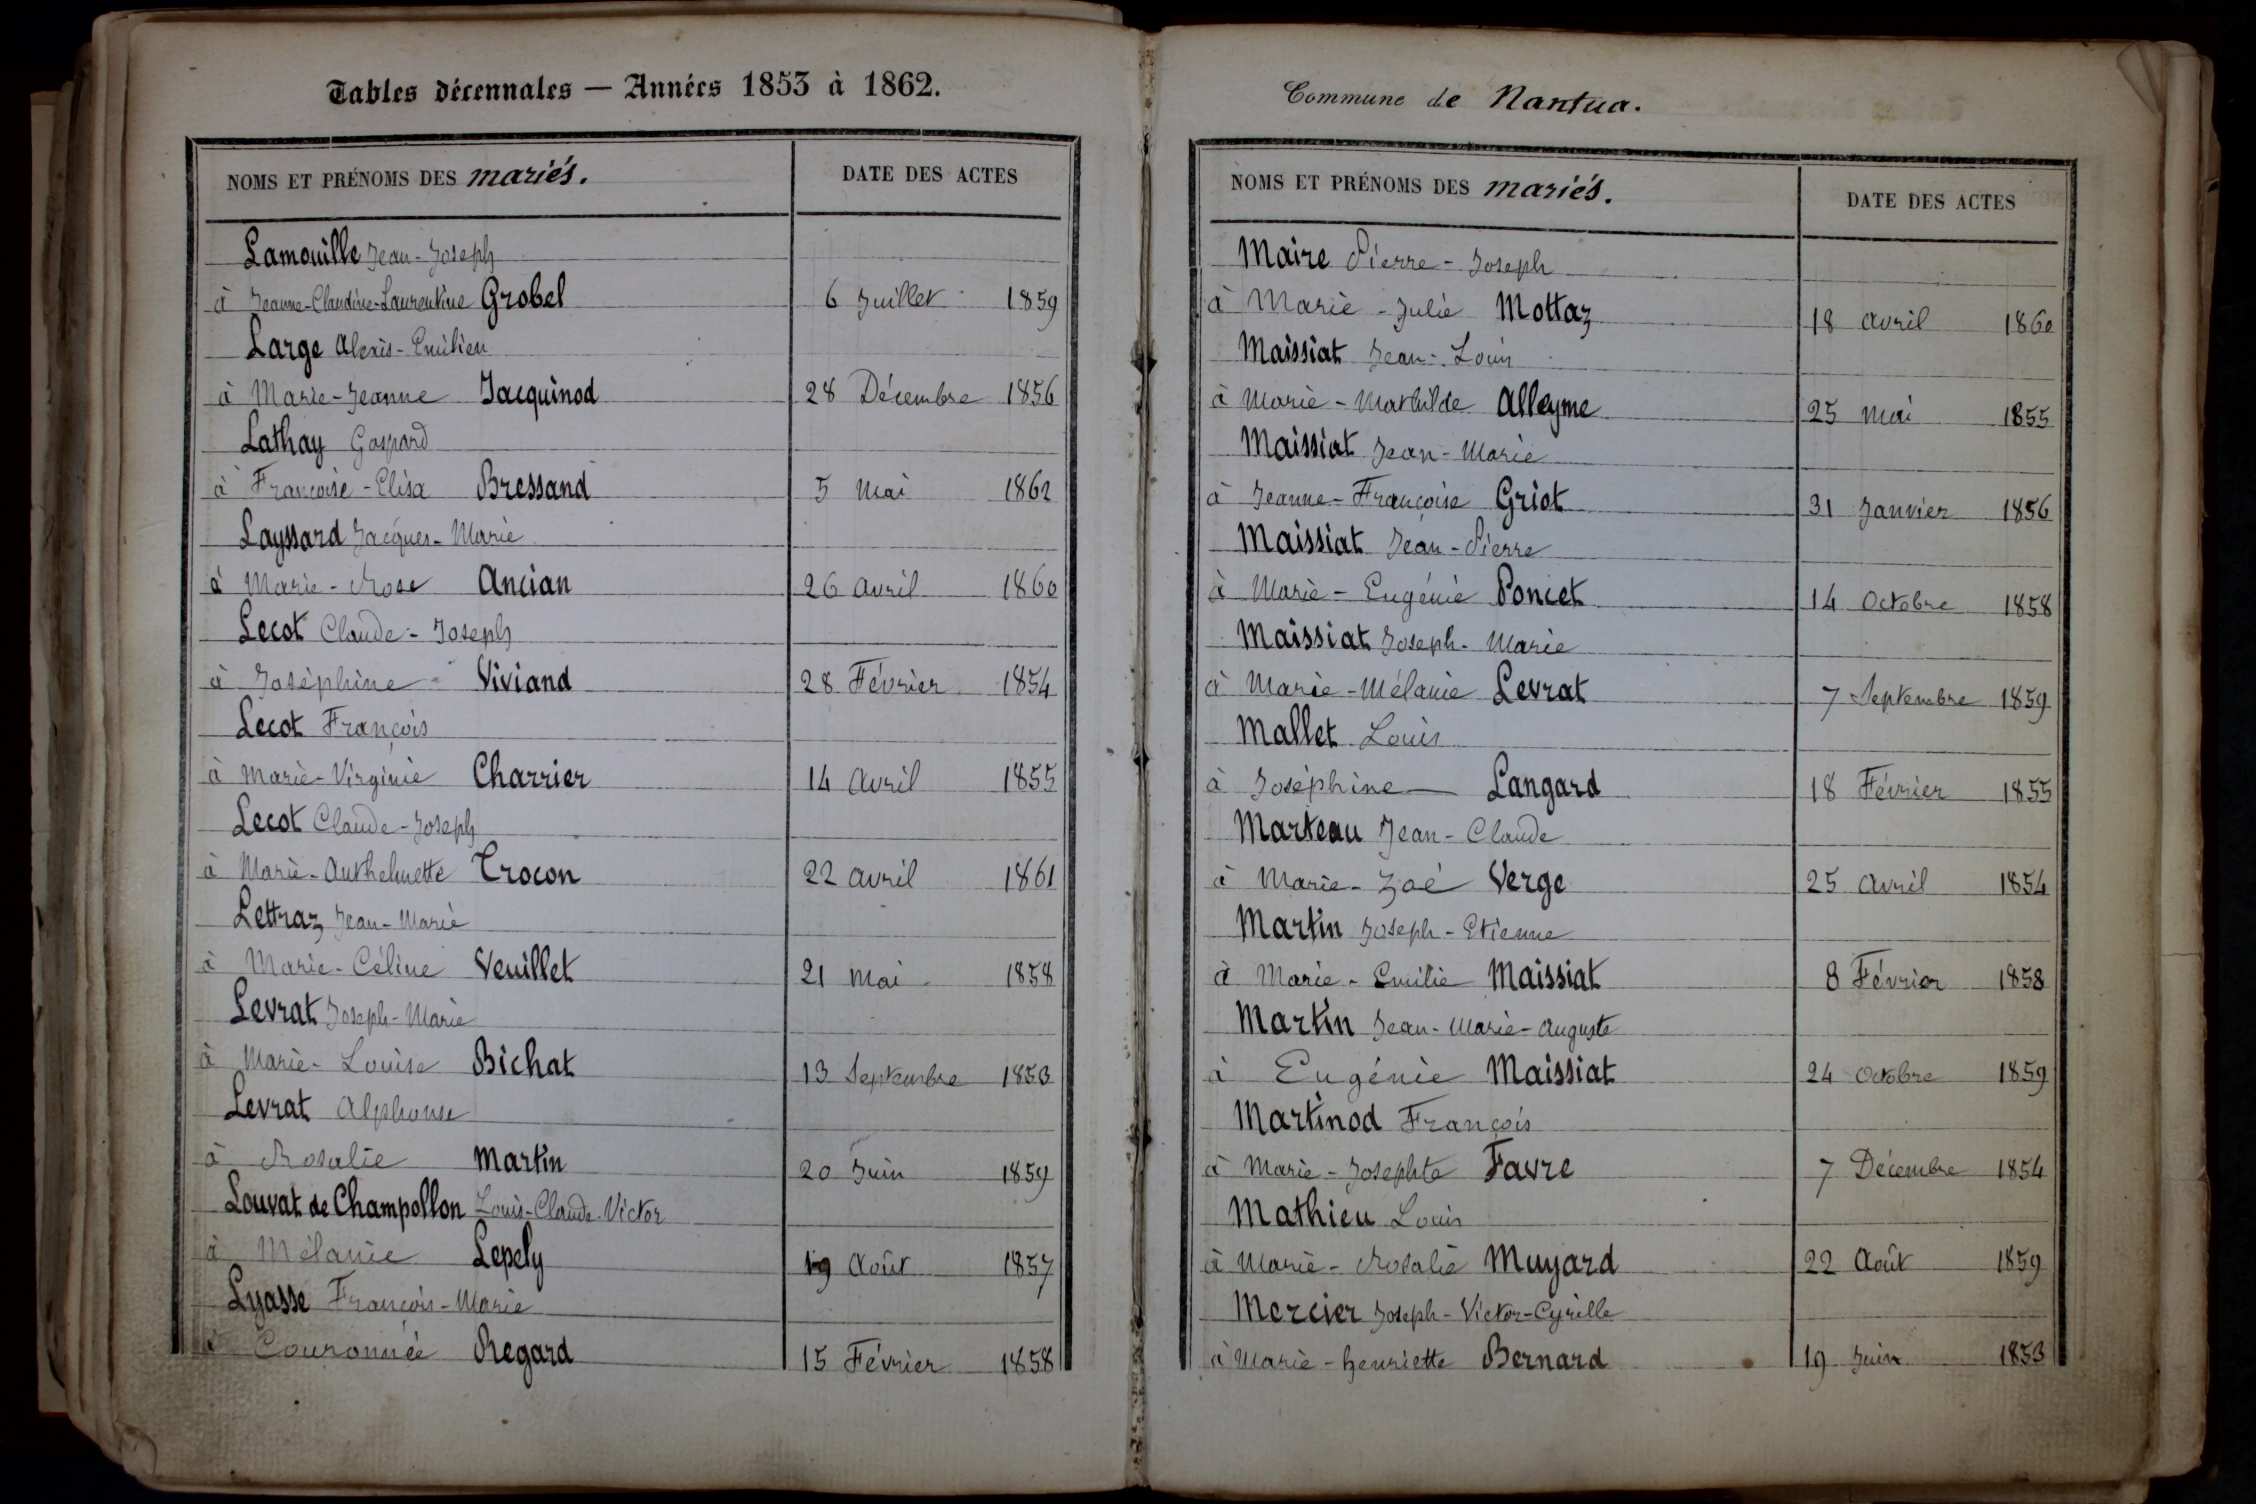 Tables décennales — Années 1853 à 1862.
NOMS ET PRÉNOMS DES mariés. DATE DES ACTES
Lamouille Jean-Joseph
à Jeanne-Claudine-Laurentine Grobel 6 Juillet 1859
Large Alexis-Emilien
à Marie-Jeanne Jacquinod 28 Décembre 1856
Lathay Gaspard
à Françoise-Elisa Bressand 5 Mai 1862
Layssard Jacques-Marie
à Marie-Rose Ancian 26 Avril 1860
Lecot Claude-Joseph
à Joséphine Viviand 28 Février 1854
Lecot François
à Marie-Virginie Charrier 14 Avril 1855
Lecot Claude-Joseph
à Marie-Anthelmette Trocon 22 Avril 1861
Lettraz Jean-Marie
à Marie-Céline Veuillet 21 Mai 1858
Levrat Joseph-Marie
à Marie-Louise Bichat 13 Septembre 1853
Levrat Alphonse
à Rosalie Martin 20 Juin 1859
Louvat de Champollon Louis-Claude-Victor
à Mélanie Lepely 19 Août 1857
Lyasse François-Marie
à Couronnée Regard 15 Février 1858
Commune de Nantua.
NOMS ET PRÉNOMS DES mariés. DATE DES ACTES
Maire Pierre-Joseph
à Marie-Julie Mottaz 18 Avril 1860
Maissiat Jean-Louis
à Marie-Mathilde Alleyme 25 Mai 1855
Maissiat Jean-Marie
à Jeanne-Françoise Griot 31 Janvier 1856
Maissiat Jean-Pierre
à Marie-Eugénie Poncet 14 Octobre 1858
Maissiat Joseph-Marie
à Marie-Mélanie Levrat 7 Septembre 1859
Mallet Louis
à Joséphine Langard 18 Février 1855
Marteau Jean-Claude
à Marie-Zoé Verge 25 Avril 1854
Martin Joseph-Etienne
à Marie-Emilie Maissiat 8 Février 1858
Martin Jean-Marie-Auguste
à Eugénie Maissiat 24 Octobre 1859
Martinod François
à Marie-Josephte Favre 7 Décembre 1854
Mathieu Louis
à Marie-Rosalie Muyard 22 Août 1859
Mercier Joseph-Victor-Cyrille
à Marie-henriette Bernard 19 Juin 1853